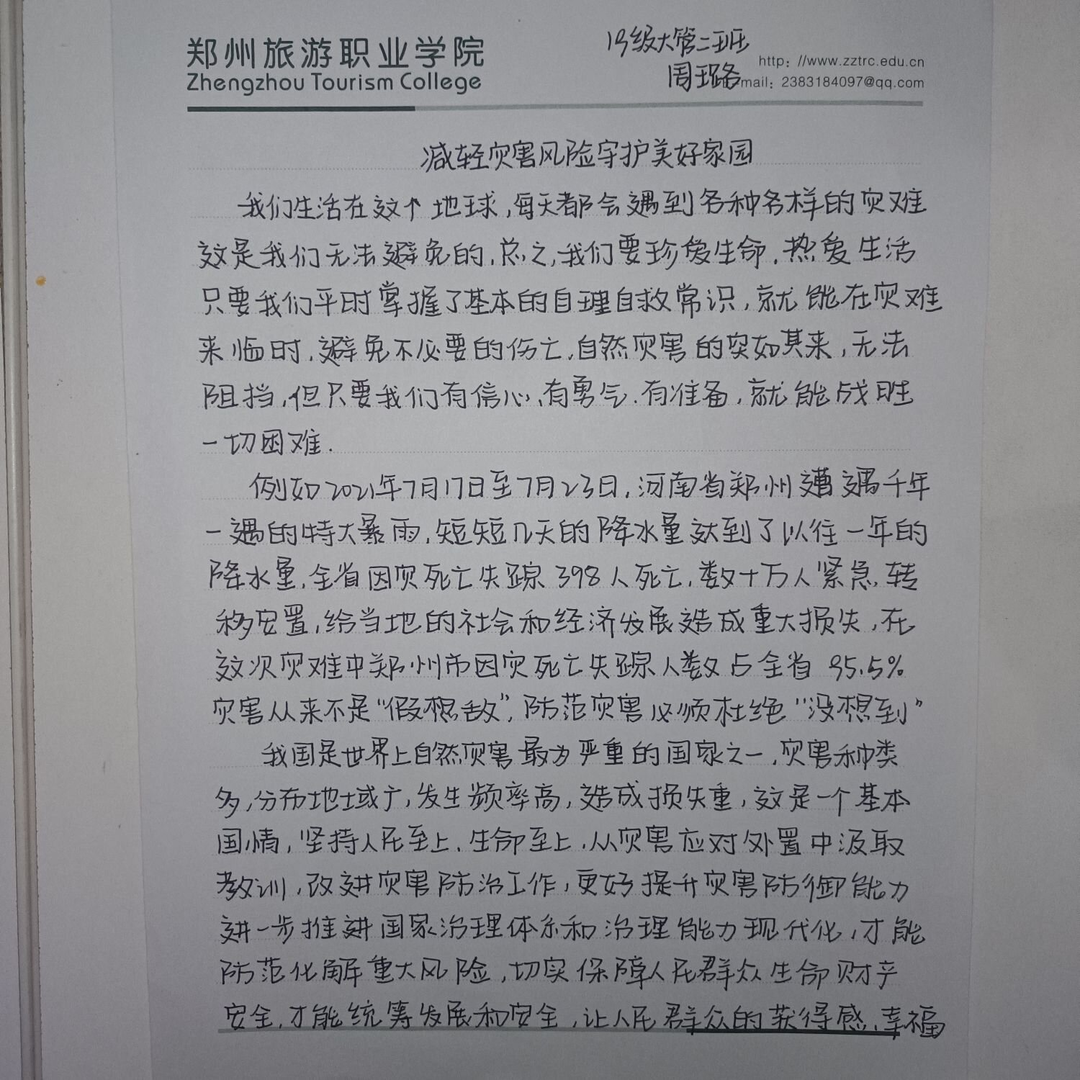 郑州旅游职业学院
Zhengzhou Tourism College
19级大管二班
http: //www.zztrc.edu.cn
周璐
mail: 2383184097@qq.com
减轻灾害风险守护美好家园
我们生活在这个地球,每天都会遇到各种各样的灾难
这是我们无法避免的.总之,我们要珍爱生命.热爱生活
只要我们平时掌握了基本的自理自救常识,就能在灾难
来临时,避免不必要的伤亡,自然灾害的突如其来,无法
阻挡,但只要我们有信心、有勇气.有准备,就能战胜
一切困难.
例如2021年7月17日至7月23日,河南省郑州遭遇千年
一遇的特大暴雨,短短几天的降水量达到了以往一年的
降水量,全省因灾死亡失踪398人死亡,数十万人紧急.转
移安置,给当地的社会和经济发展造成重大损失,在
这次灾难中郑州市因灾死亡失踪人数占全省95.5%
灾害从来不是“假想敌”,防范灾害必须杜绝“没想到”
我国是世界上自然灾害最为严重的国家之一,灾害种类
多,分布地域广,发生频率高,造成损失重,这是一个基本
国情,坚持人民至上、生命至上,从灾害应对处置中汲取
教训,改进灾害防治工作,更好提升灾害防御能力
进一步推进国家治理体系和治理能力现代化,才能
防范化解重大风险,切实保障人民群众生命财产
安全,才能统筹发展和安全,让人民群众的获得感、幸福